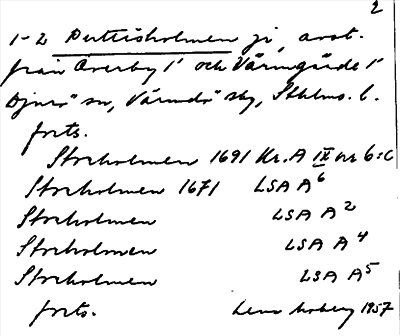 2
1-2 Buttsholmen ji, avst.
från Överby 1' och Värmgärde 1'
Djurö sn, Värmdö sky, Sthlms. l.
forts.
Storholmen 1691 Kr. A IX nr 6:c
Storholmen 1671 LSA A6
Storholmen LSA A2
Storholmen LSA A4
Storholmen LSA A5
forts. 1957